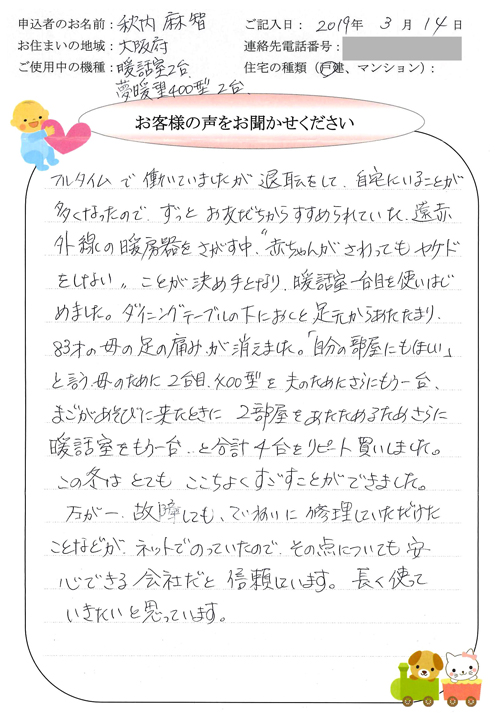 申込者のお名前：秋内 麻智
ご記入日：2019年 3月 14日
お住まいの地域：大阪府
連絡先電話番号：
ご使用中の機種：暖話室2台
住宅の種類（戸建、マンション）：
夢暖望400型 2台
お客様の声をお聞かせください
フルタイムで働いていましたが退職をして、自宅にいることが
多くなったので、ずっとお友だちからすすめられていた、遠赤
外線の暖房器をさがす中、"赤ちゃんがさわってもヤケド
をしない〃ことが決め手となり、暖話室一台目を使いはじ
めました。ダイニングテーブルの下におくと足元からあたたまり、
83才の母の足の痛みが消えました。「自分の部屋にもほしい」
と言う母のために2台目、400型を夫のためにさらにもう一台、
まごがあそびに来たときに 2部屋をあたためるためさらに
暖話室をもう一台、と合計4台をリピート買いしました。
この冬はとても ここちよくすごすことができました。
万が一、故障しても、ていねいに修理していただけた
ことなどが、ネットでのっていたので、その点についても安
心できる会社だと信頼しています。長く使って
いきたいと思っています。